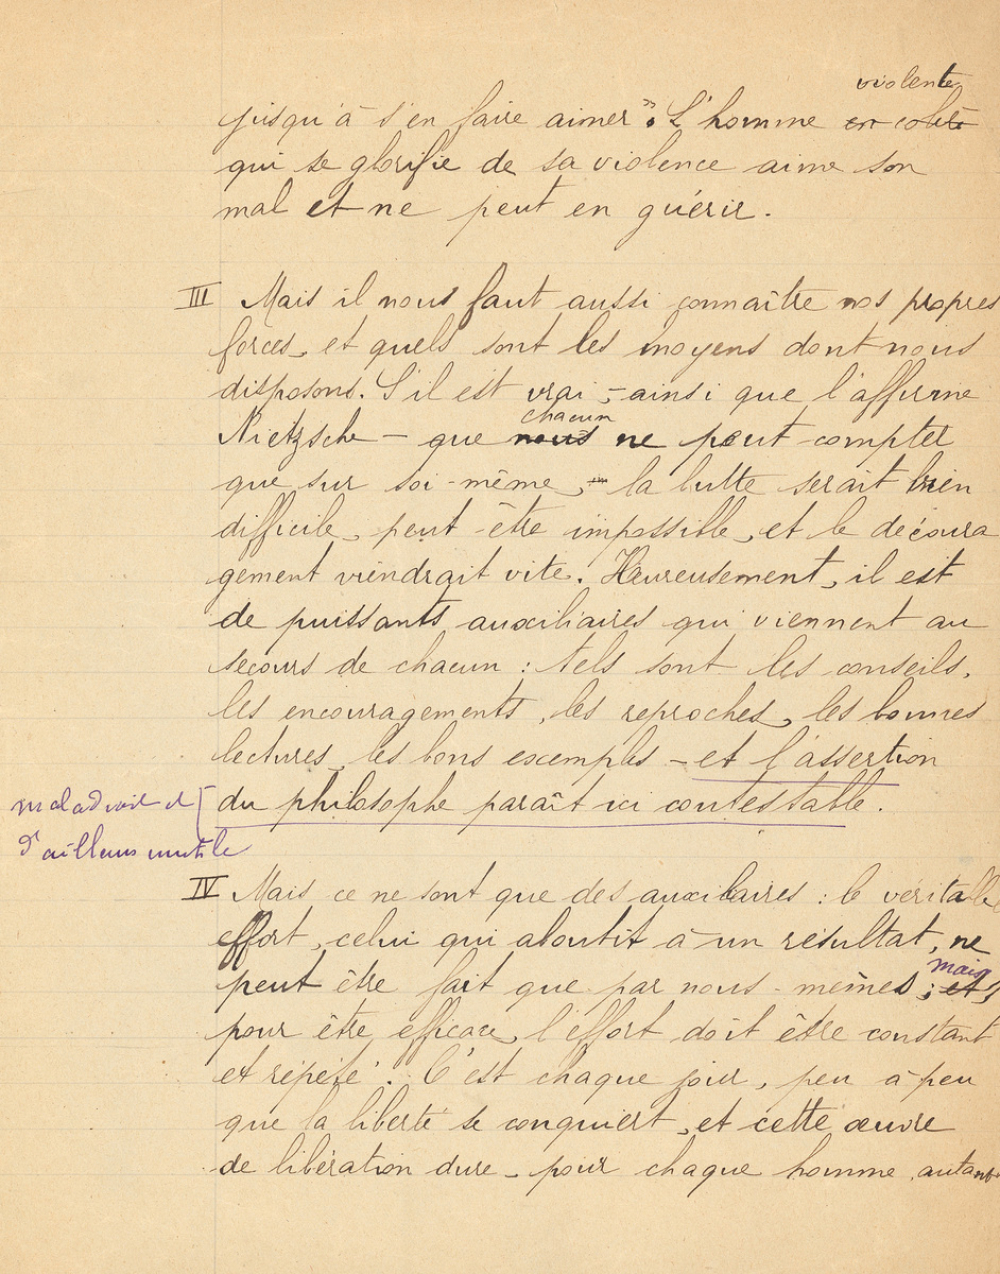 violente
jusqu'à s'en faire aimer". L'homme en colère
qui se glorifie de sa violence aime son
mal et ne peut en guérir.
III Mais il nous faut aussi connaître nos propres
forces, et quels sont les moyens dont nous
disposons. S'il est vrai, - ainsi que l'affirme
chacun
Nietzsche - que nous ne peut compter
que sur soi-même, la lutte serait bien
difficile, peut-être impossible, et le découra
gement viendrait vite. Heureusement, il est
de puissants auxiliaires qui viennent au
secours de chacun : tels sont les conseils,
les encouragements, les reproches, les bonnes
lectures, les bons exemples - et l'assertion
maladroit et du philosophe paraît ici contestable.
d'ailleurs inutile
IV Mais ce ne sont que des auxiliaires : le véritable
effort, celui qui aboutit à un résultat, ne
mais
peut être fait que par nous-mêmes ; et,
pour être efficace, l'effort doit être constant
et répété. C'est chaque jour, peu à peu
que la liberté se conquiert, et cette œuvre
de libération dure, pour chaque homme, autant